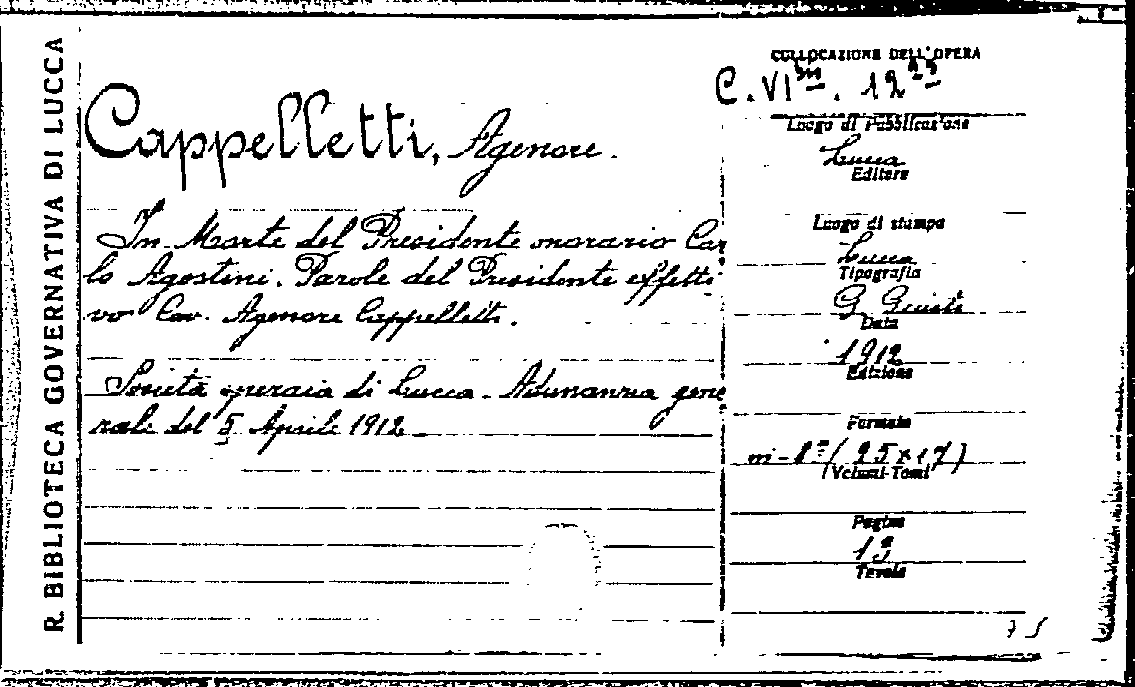 R. BIBLIOTECA GOVERNATIVA DI LUCCA
Cappelletti, Agenore.
In Morte del Presidente onorario Car
lo Agostini. Parole del Presidente effetti
vo Cav. Agenore Cappelletti.
Società operaia di Lucca - Adunanza gene
rale del 5 Aprile 1912
COLLOCAZIONE DELL'OPERA
C. VI. 12
Luogo di Pubblicazione
Lucca
Editore
Luogo di stampa
Lucca
Tipografia
G. Giusti
Data
1912
Edizione
Formato
in-8° (25×17)
(Volumi-Tomi
Pagine
13
Tavole
75